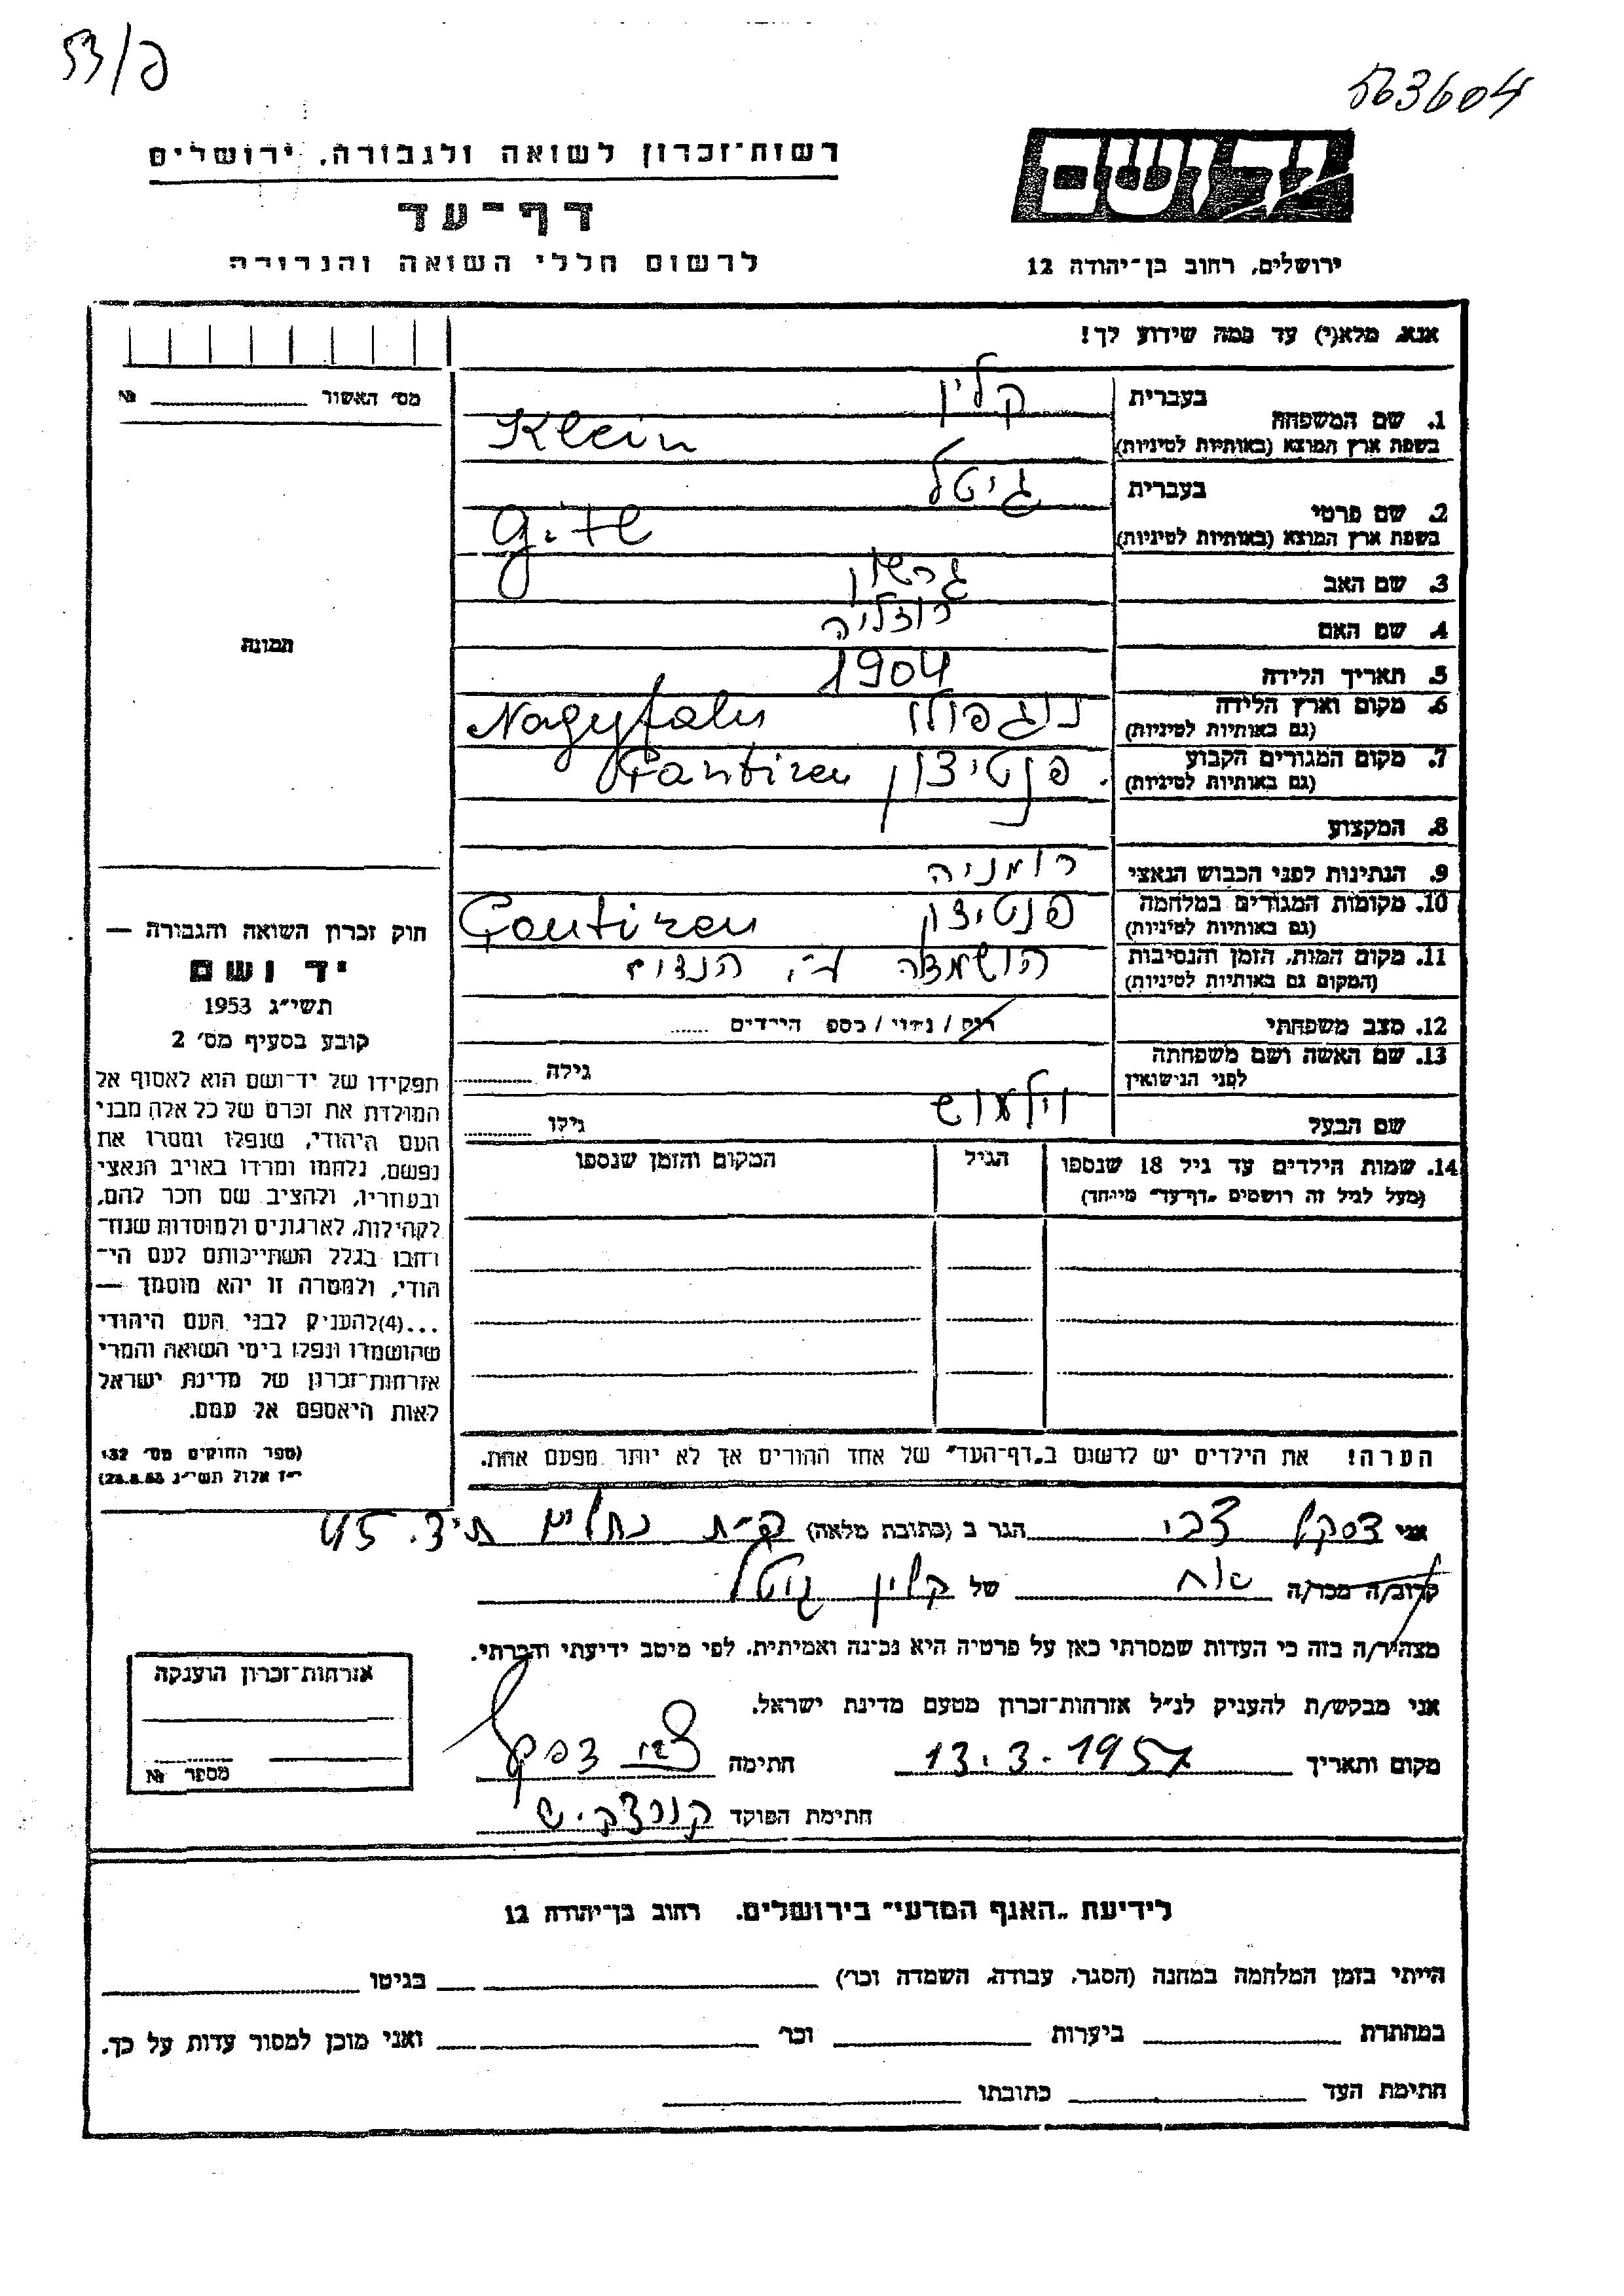 53/פ
563604
רשות־זכרון לשואה ולגבורה, ירושלים
יד ושם
דף־עד
לרשום חללי השואה והגבורה
ירושלים, רחוב בן־יהודה 12
אנא, מלא(י) עד כמה שידוע לך!
מס׳ האשור № 
1. שם המשפחה בעברית קליין
בשפת ארץ המוצא (באותיות לטיניות) Klein
2. שם פרטי בעברית גיטל
בשפת ארץ המוצא (באותיות לטיניות)
3. שם האב גרשון
4. שם האם רוזליה
5. תאריך הלידה 1904
6. מקום וארץ הלידה Nagyfalu
(גם באותיות לטיניות)
7. מקום המגורים הקבוע
(גם באותיות לטיניות)
8. המקצוע
9. הנתינות לפני הכבוש הנאצי רומניה
10. מקומות המגורים במלחמה
(גם באותיות לטיניות)
11. מקום המות, הזמן והנסיבות
(המקום גם באותיות לטיניות)
12. מצב משפחתי רוק / נשוי / מספר הילדים
13. שם האשה ושם משפחתה גילה
לפני הנישואין
שם הבעל גילו
14. שמות הילדים עד גיל 18 שנספו הגיל המקום והזמן שנספו
(מעל לגיל זה רושמים „דף־עד״ מיוחד)
הערה! את הילדים יש לרשום ב„דף־העד״ של אחד ההורים אך לא יותר מפעם אחת.
תמונה
חוק זכרון השואה והגבורה —
יד ושם
תשי״ג 1953
קובע בסעיף מס׳ 2
תפקידו של יד־ושם הוא לאסוף אל
המולדת את זכרם של כל אלה מבני
העם היהודי, שנפלו ומסרו את
נפשם, נלחמו ומרדו באויב הנאצי
ובעוזריו, ולהציב שם וזכר להם,
לקהילות, לארגונים ולמוסדות שנח־
רחבו בגלל השתייכותם לעם הי־
הודי, ולמטרה זו יהא מוסמך —
...(4)להעניק לבני העם היהודי
שהושמדו ונפלו בימי השואה והמרי
אזרחות־זכרון של מדינת ישראל
לאות היאספם אל עמם.
(ספר החוקים מס׳ 132,
י״ז אלול תשי״ג 28.8.53)
אני צבי הגר ב (כתובת מלאה) ת.ד. 45
קרוב/ה מכר/ה אח של קליין גיטל
מצהיר/ה בזה כי העדות שמסרתי כאן על פרטיה היא נכונה ואמיתית, לפי מיטב ידיעתי והכרתי.
אני מבקש/ת להעניק לנ״ל אזרחות־זכרון מטעם מדינת ישראל.
מקום ותאריך 13.3.1957 חתימה צבי
חתימת הפוקד
אזרחות־זכרון הוענקה
מספר №
לידיעת „האגף המדעי״ בירושלים, רחוב בן־יהודה 12
הייתי בזמן המלחמה במחנה (הסגר, עבודה, השמדה וכר׳) בגיטו
במחתרת ביערות וכר׳ ואני מוכן למסור עדות על כך.
חתימת העד כתובתו